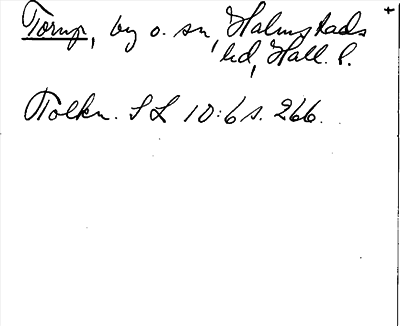 Torup, by o. sn, Halmstads
hd, Hall. l.
Tolkn. SL 10:6 s. 266.